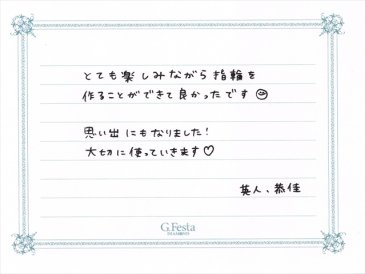 とても楽しみながら指輪を
作ることができて良かったです
思い出にもなりました!
大切に使っていきます♡
英人、恭佳
G.Festa
DIAMOND